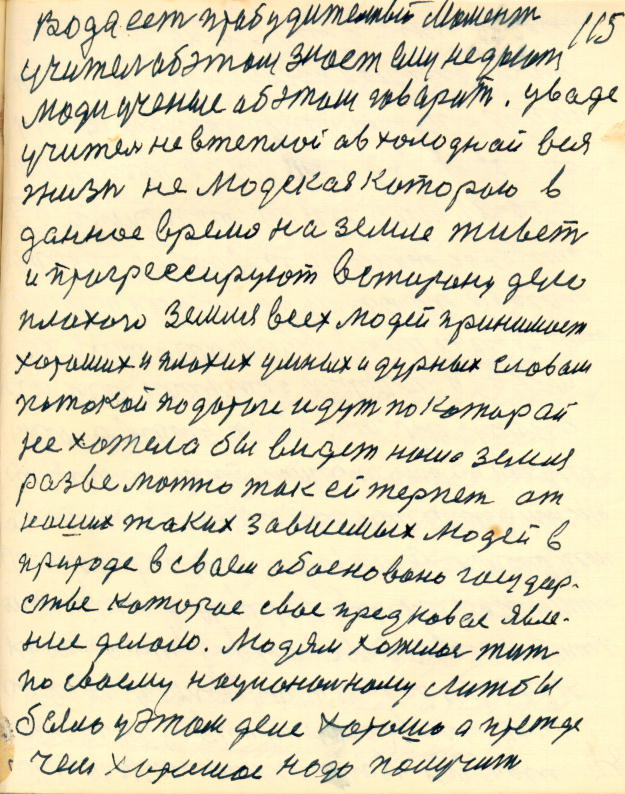 115
Вода ест прабудителный Момент
учител обэтом знает ему недрюг
люди ученые обэтом говарят. уваде
учител не втеплой а в холоднай вся
жизн не людская которою в
данное время на земле живет
и прогрессируют встарону дело
плахого Земля всех людей принимает
хороших и плахих умных и дурных словам
потокой подороге идут по Которай
не хотела бы видет ношо земля
разве можно так ей терпет от
наших таких зависемых людей в
природе в сваем обосновано государ-
стве которое свое предковое явле-
ние делаю. Людям хотелос жит
по своему национолному лижбы
было уэтом деле хорошо а прежде
чем хорошое надо получит